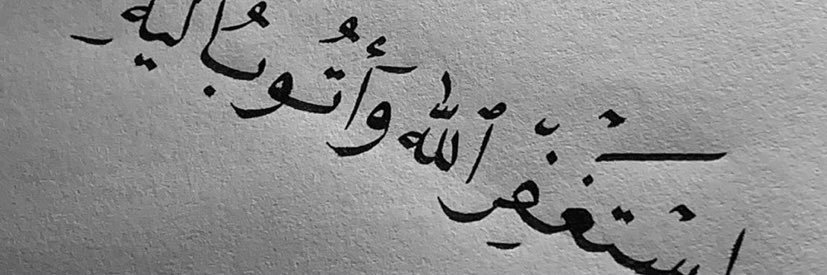 استغفر ٱلله وأتوب إليه